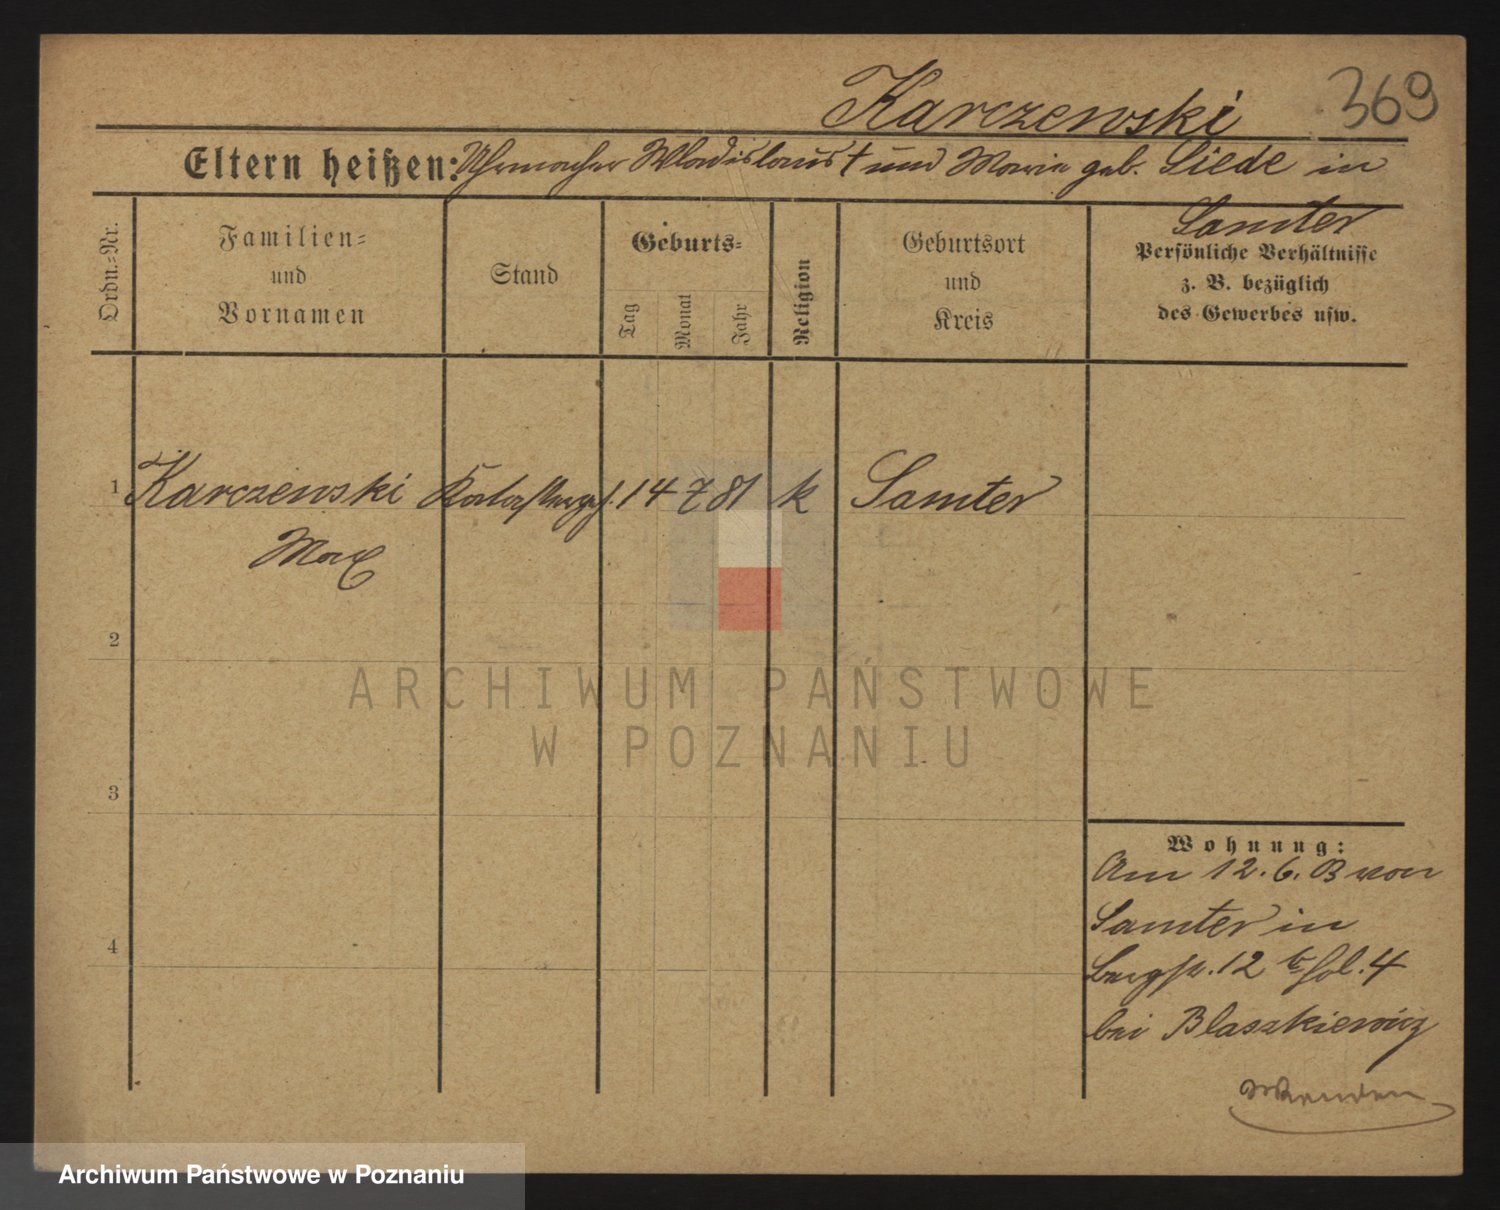 Karczewski 369
Eltern heißen: Uhrmacher Wladislaus † und Marie geb. Liede in
Samter
Ordn.-Nr.
Familien-
und
Vornamen
Stand
Geburts-
Tag
Monat
Jahr
Religion
Geburtsort
und
Kreis
Persönliche Verhältnisse
z. B. bezüglich
des Gewerbes usw.
1 Karczewski 14 7 81 k Samter
Max
2
3
4
Wohnung:
Am 12.6.03 von
Samter in
Bergstr. 12 4
bei Blaszkiewicz
Wenden
ARCHIWUM PAŃSTWOWE
W POZNANIU
Archiwum Państwowe w Poznaniu